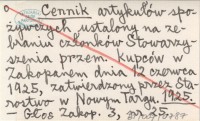 Cennik artykułów spo-
żywczych ustalony na ze-
braniu członków Stowarzy-
szenia przem. kupców w
Zakopanem dnia 12 czerwca
1925, zatwierdzony przez Sta-
rostwo w Nowym Targu. 1925.
- Głos Zakop. 3, nr 25.